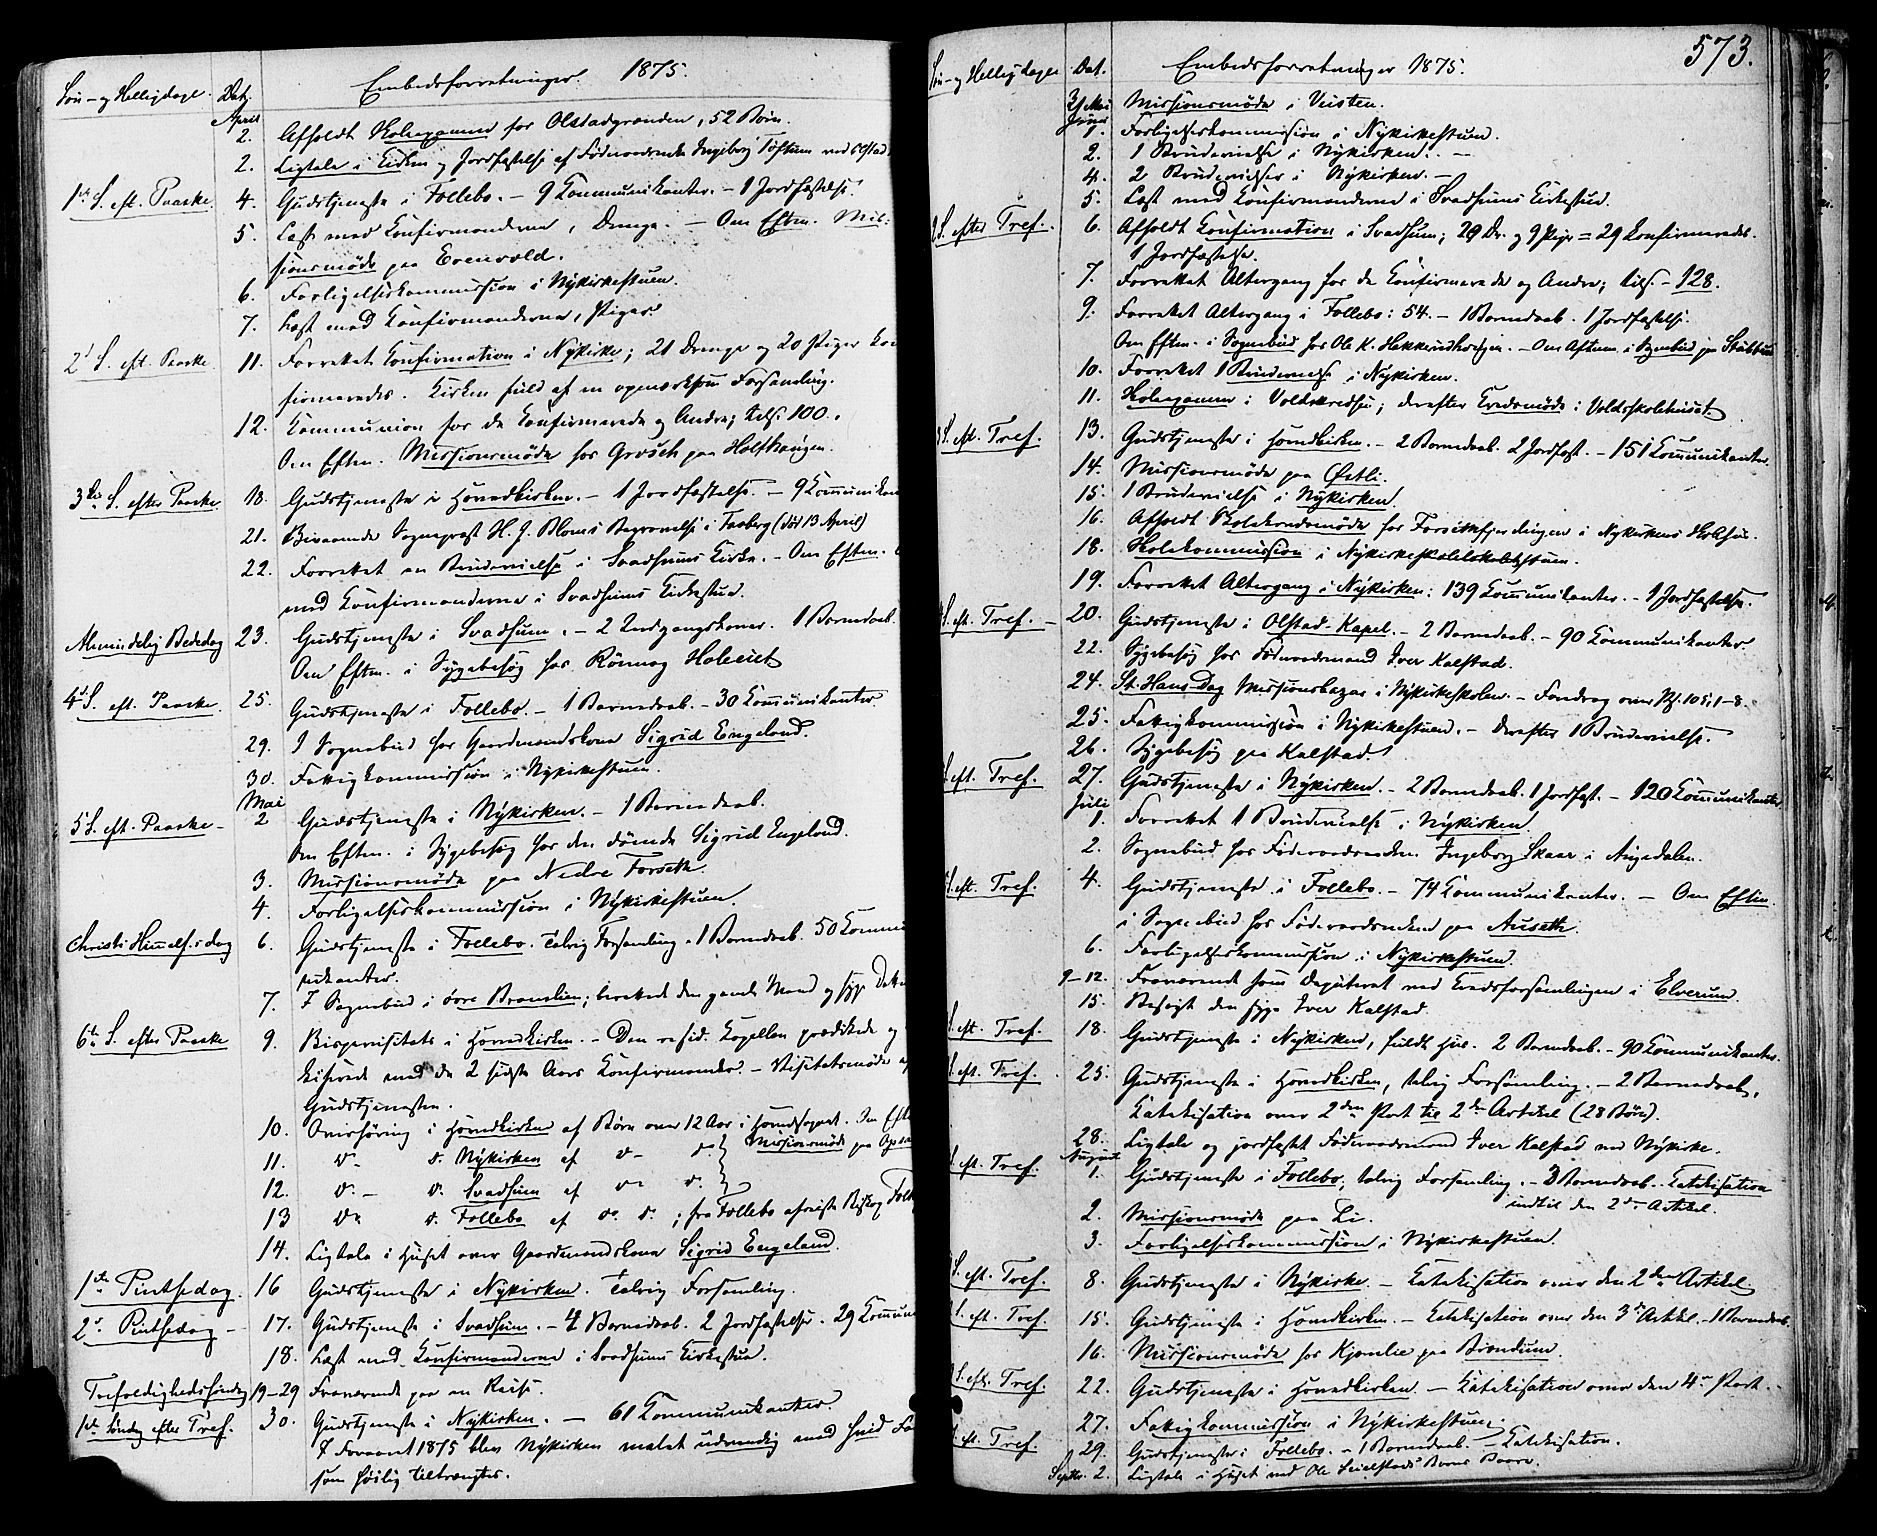 Søn- og Helligdage. Dat. Embedsforretninger. 1875.
April
2. Afholdt Skoleexamen for Olstadgrænden, 52 Børn.
2. Ligtale i Kirken og Jordfæstelse af Føderaadsenke Ingeborg Toftum ved Olstad
1ste S. eft. Paaske. 4. Gudstjeneste i Follebo. - 9 Kommunikanter. - 1 Jordfæstelse.
5. Læst med Konfirmanderne, Drenge. - Om Eftm. Mis-
sionsmøde paa Evenvold.
6. Forligelseskommission i Nykirkestuen.
7. Læst med Konfirmanderne, Piger.
2d S. eft. Paaske. 11. Forrettet Konfirmation i Nykirke; 21 Drenge og 20 Piger kon
firmeredes. Kirken fuld af en opmærksom Forsamling.
12. Kommunion for de Konfirmerede og Andre; tils. 100.
Om Eftm. Missionsmøde hos Grosch paa Holthaugen.
3die S. efter Paaske 18. Gudstjeneste i Hovedkirken. - 1 Jordfæstelse. - 9 Kommunikan
21. Bivaanede Sogneprest H. J. Bloms Begravelse i Faaberg (død 13 April)
22. Forrettet en Brudevielse i Svadsums Kirke. - Om Eftm.
med Konfirmanderne i Svadsums Kirkestue.
Almindelig Bededag 23. Gudstjeneste i Svadsum. - 2 Indgangskoner. 1 Barnedaab.
Om Eftm. i Sygebesøg hos Rønnog Holeeiet
4de S. eft. Paaske. 25. Gudstjeneste i Follebo. - 1 Barnedaab. - 30 Kommunikanter
29. I Sognebud hos Gaardmandskone Sigrid Engeland.
30. Fattigkommission i Nykirkestuen.
Mai
5 S. eft. Paaske - 2 Gudstjeneste i Nykirken. - 1 Barnedaab.
Om Eftm. i Sygebesøg hos den dømde Sigrid Engeland.
3. Missionsmøde paa Nedre Forseth.
4. Forligelseskommission i Nykirkestuen.
Christi Himmelf.s dag 6. Gudstjeneste i Follebo. Talrig Forsamling. 1 Barnedaab. 50 Kommu
nikanter.
7. I Sognebud i øvre Brænlien; berettede den gamle Mand og syge Datter
6te S. efter Paaske 9. Bispevisitats i Hovedkirken. - Den resid. Kapellan prædikede og
katechiserede med de 2 sidste Aars Konfirmander. - Visitatsmøde efter
Gudstjenesten.
10. Overhøring i Hovedkirken af Børn over 12 Aar i Hovedsognet. Om Eftm.
11. do. - do. Nykirken af do - do } Missionsmøde paa
12. do. - do. Svadsum af do do.
13 do do. Follebo af do. do.; fra Follebo afreiste Biskop
14. Ligtale i Huset over Gaardmandskone Sigrid Engeland.
1ste Pintsedag. 16 Gudstjeneste i Nykirken. Talrig Forsamling.
2d. Pintsedag - 17. Gudstjeneste i Svadsum. - 4 Barnedaab. 2 Jordfæstelser. 29 Kommun
18. Læst med Konfirmanderne i Svadsums Kirkestue.
Trefoldighedssøndag 19-29 Fraværende paa en Reise.
1ste Søndag efter Tref. 30. Gudstjeneste i Nykirken. - 61 Kommunikanter.
I Foraaret 1875 blev Nykirken malet udvendig med hvid Fa
som høilig tiltrængtes.
573.
Søn- og Helligdage Dat. Embedsforretninger 1875.
31 Mai Missionsmøde i Veisten.
Juni
1. Forligelseskommission i Nykirkestuen.
2. 1 Brudevielse i Nykirken. -
4. 2 Brudevielser i Nykirken. -
5. Læst med Konfirmanderne i Svadsums Kirkestue.
2 S. efter Tref. 6. Afholdt Konfirmation i Svadsum; 20 Dr. og 9 Piger = 29 Konfirmerede.
1 Jordfæstelse.
7. Forrettet Altergang for de Konfirmerede og Andre; tils. - 128.
9. Forrettet Altergang i Follebo: 54. - 1 Barnedaab. 1 Jordfæstelse.
Om Eftm. i Sognebud hos Ole K. - Om Aftenen i Sognebud paa
10. Forrettet 1 Brudevielse i Nykirken.
11. Skoleexamen i Voldskredsen; derefter Kredsmøde i Voldsskolehuset.
3 S. eft. Tref. 13. Gudstjeneste i Hovedkirken. - 2 Barnedaab. 2 Jordfæst. - 151 Kommunikanter.
14. Missionsmøde paa Østli.
15. 1 Brudevielse i Nykirken.
16. Afholdt Skolekredsmøde for i Nykirkens
18. Skolekommission i
19. Forrettet Altergang i Nykirken: 139 Kommunikanter. - 1 Jordfæstelse.
S. eft. Tref. - 20. Gudstjeneste i Olstad-Kapel. - 2 Barnedaab. - 90 Kommunikanter.
22. Sygebesøg hos Føderaadsmand Iver Kalstad.
24. St. Hans-Dag Missionsbazar i Nykirkeskolen. - Foredrag over Ps. 105, 1-8.
25. Fattigkommission i Nykirkestuen. - Derefter 1 Brudevielse.
26. Sygebesøg paa Kalstad.
S. eft. Tref. 27. Gudstjeneste i Nykirken. - 2 Barnedaab. 1 Jordfæst. - 120 Kommunikanter.
Juli
1. Forrettet 1 Brudevielse i Nykirken.
2. Sognebud hos Føderaadsenken Ingeborg Skaar i Augedalen.
S. eft. Tref. 4. Gudstjeneste i Follebo. - 74 Kommunikanter. - Om Eftm.
i Sognebud hos Føderaadsenken paa Auseth.
6. Forligelseskommission i Nykirkestuen.
9-12. Fraværende som Deputeret ved Kredsforsamlingen i Elverum.
15. Besøgt den syge Iver Kalstad.
S. eft. Tref. 18. Gudstjeneste i Nykirken, fuldt Hus. 2 Barnedaab. - 90 Kommunikanter.
S. eft. Tref. 25. Gudstjeneste i Hovedkirken, talrig Forsamling. - 2 Barnedaab.
Katekisation over 2den Part til 2den Artikel (28 Børn).
28. Ligtale og jordfæstet Føderaadsmand Iver Kalstad ved Nykirke.
August
S. eft. Tref. 1. Gudstjeneste i Follebo; talrig Forsamling. - 3 Barnedaab. Katekisation
indtil den 2den Artikel.
2. Missionsmøde paa Li.
3. Forligelseskommission i Nykirkestuen.
S. eft. Tref. 8. Gudstjeneste i Nykirke. - Katekisation over den 2den Artikel.
S. eft. Tref. 15. Gudstjeneste i Hovedkirken. - Katekisation over den 3die Artikel. - 1 Barnedaab.
16. Missionsmøde hos Kjønlie paa Brændum.
S. eft. Tref. 22. Gudstjeneste i Hovedkirken. - Katekisation over den 4de Part.
27. Fattigkommission i Nykirkestuen.
S. eft. Tref. 29. Gudstjeneste i Follebo. - 1 Barnedaab. - Katekisation.
Septbr. 2. Ligtale i Huset ved Ole Seielstads Barns Baare.